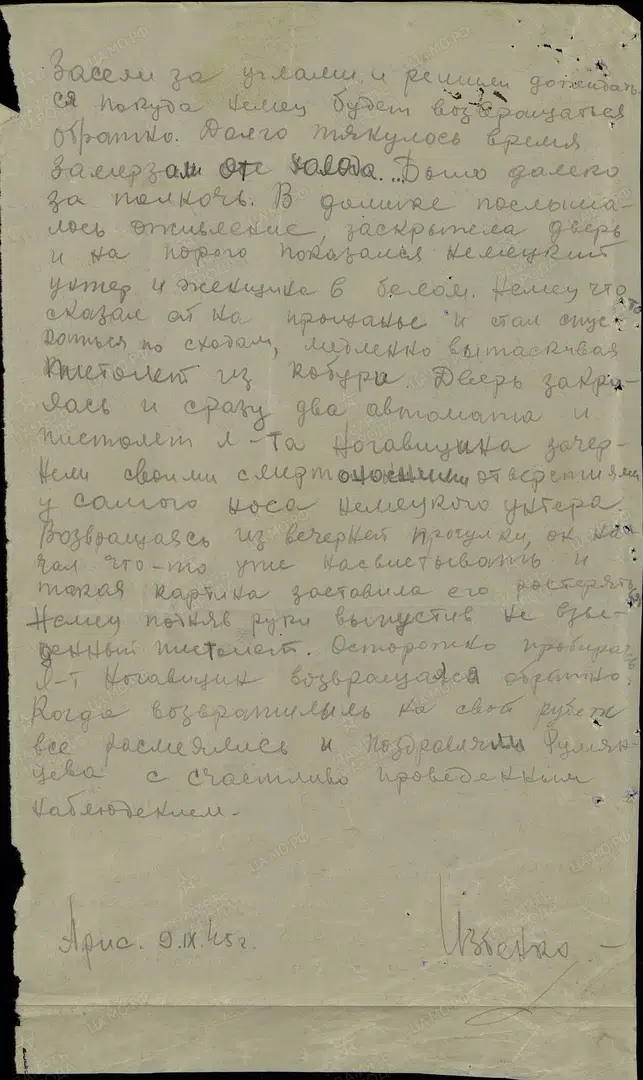 Засели за углами и решили дожидать-
ся покуда немец будет возвращаться
обратно. Долго тянулось время
Замерзали от холода... Было далеко
за полночь. В домике послыша-
лось оживление, заскрыпела дверь
и на порого показался немецкий
унтер и женщина в белом. Немец что то
сказал ой на прощанье и стал спус-
каться по сходам, медленно вытаскивая
пистолет из кобури. Дверь закры-
лась и сразу два автомата и
пистолет л-та Ногавицина зачер-
нели своими смертоносними отверстиями
у самого носа немецкого унтера.
Возвращаясь из вечерней прогулки, он на-
чал что-то уже насвистывать и
такая картина заставила его растерять
Немец подняв руки выпустив не взве-
денный пистолет. Осторожно пробираясь
л-т Ногавицин возвращался обратно.
Когда возвратились на свой рубеж
все расмеялись и поздравляли Румян-
цева с счастливо проведенным
наблюдением.
Арис. 9.IX.45г.
Избенко
ЦАМО.РФ